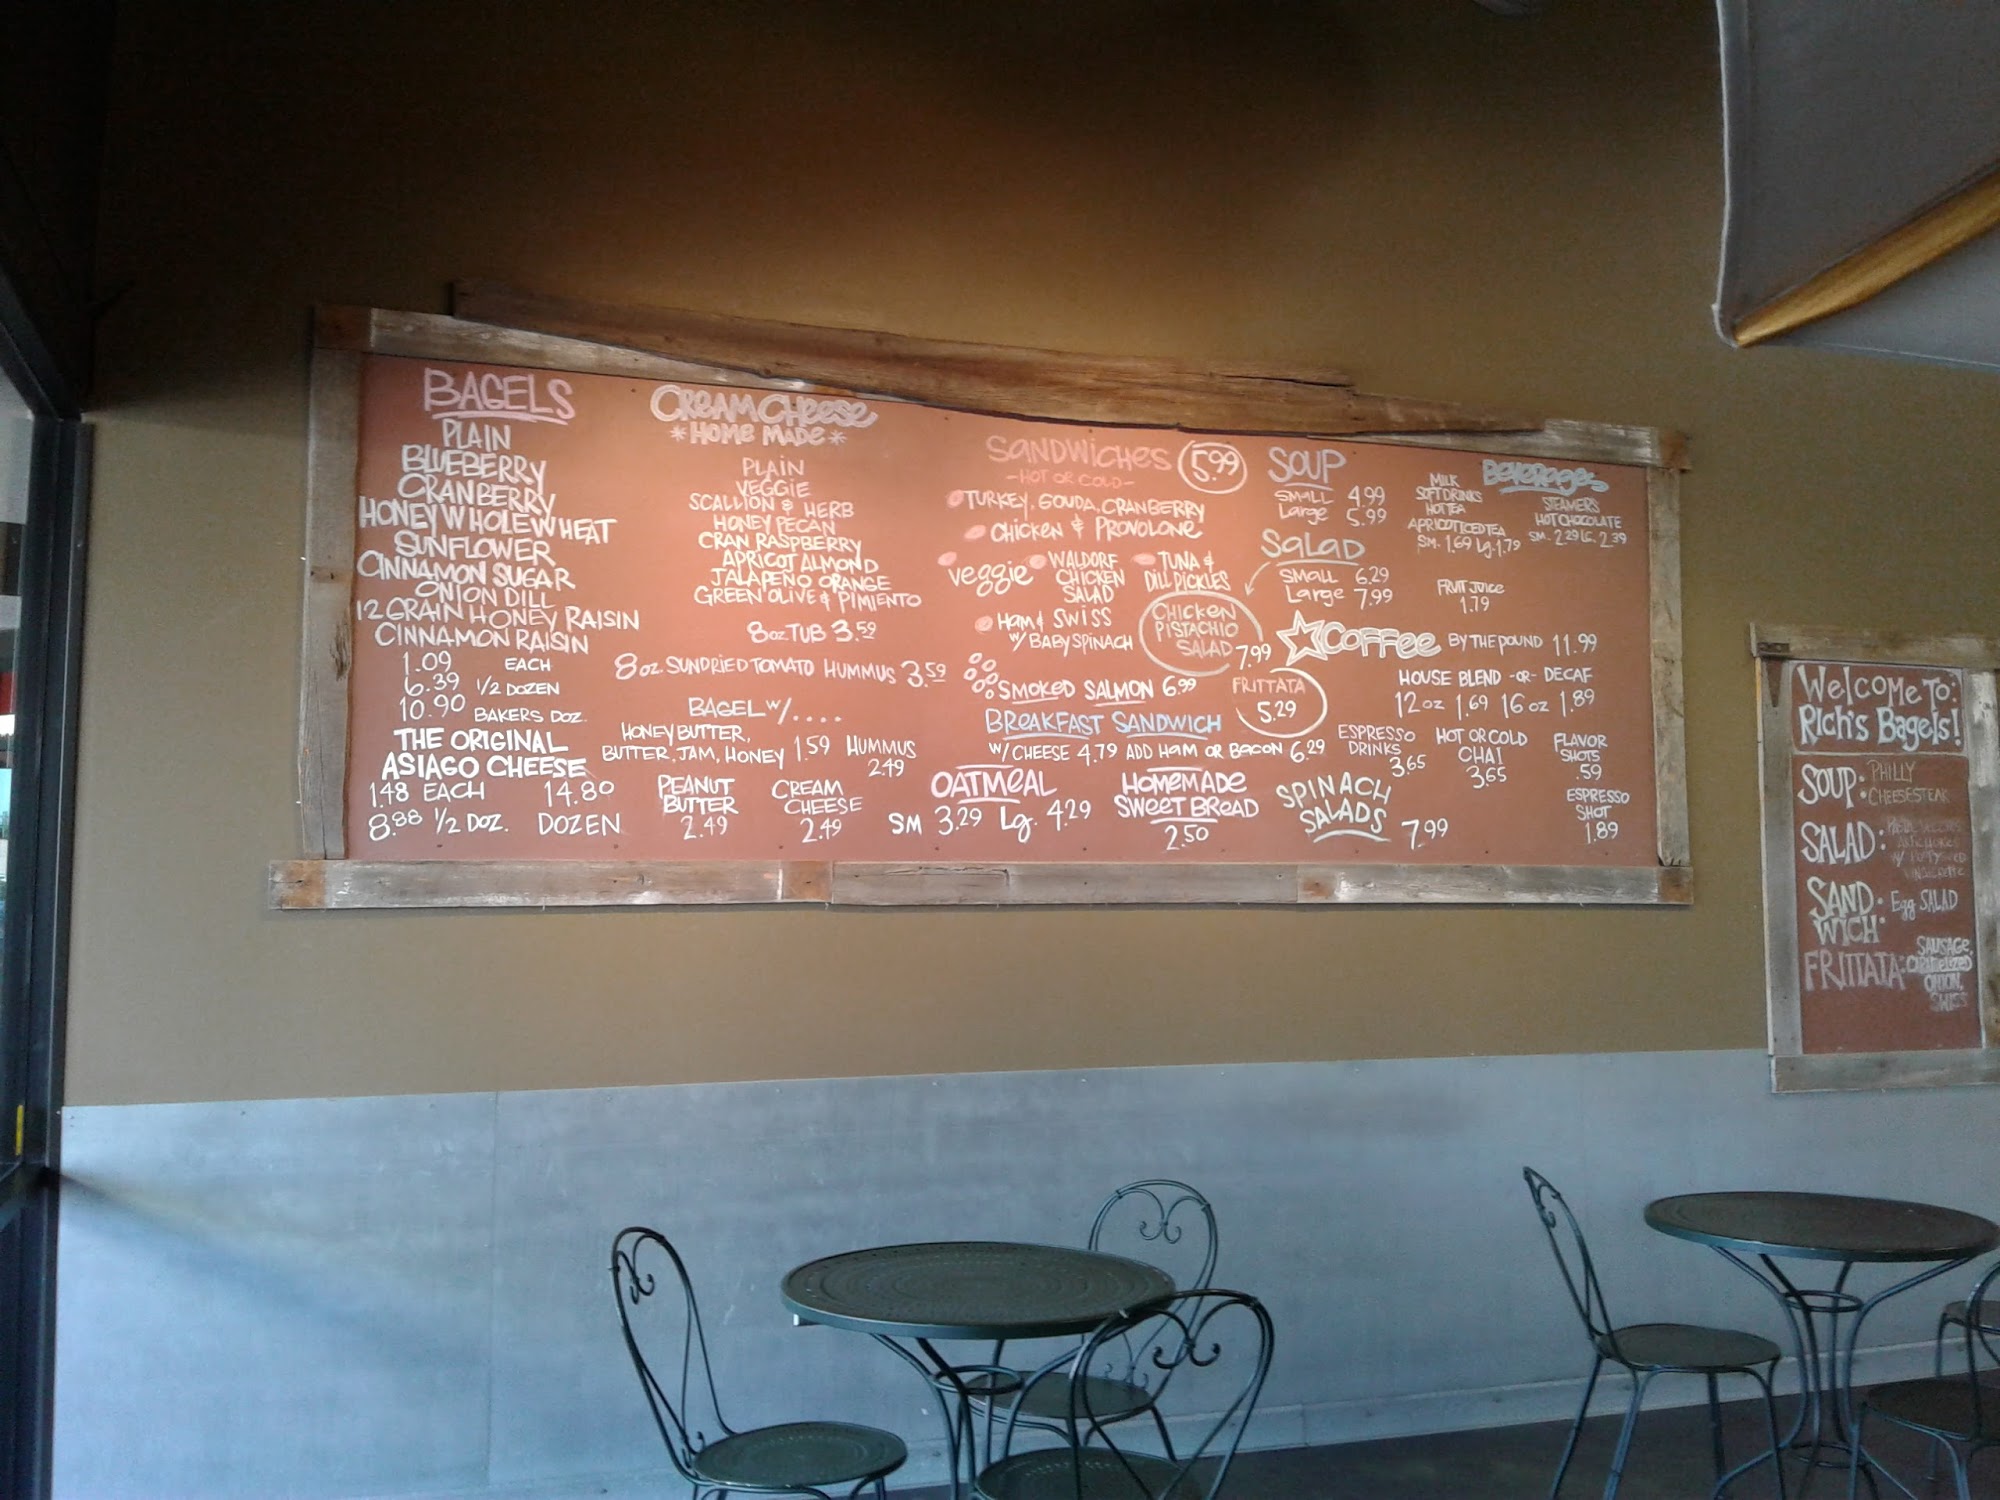 BAGELS
PLAIN
BLUEBERRY
CRANBERRY
HONEY WHOLE WHEAT
SUNFLOWER
CINNAMON SUGAR
ONION DILL
12 GRAIN HONEY RAISIN
CINNAMON RAISIN
1.09 EACH
6.39 1/2 DOZEN
10.90 BAKERS DOZ.
THE ORIGINAL
ASIAGO CHEESE
1.48 EACH 14.80
8.88 1/2 DOZ. DOZEN
CREAM CHEESE
*HOME MADE*
PLAIN
VEGGIE
SCALLION & HERB
HONEY PECAN
CRAN RASPBERRY
APRICOT ALMOND
JALAPEÑO ORANGE
GREEN OLIVE & PIMIENTO
8 oz TUB 3.59
8 oz. SUNDRIED TOMATO HUMMUS 3.59
BAGEL w/....
HONEY BUTTER,
BUTTER, JAM, HONEY 1.59
HUMMUS
2.49
PEANUT
BUTTER
2.49
CREAM
CHEESE
2.49
SANDWICHES 5.99
-HOT OR COLD-
TURKEY, GOUDA, CRANBERRY
CHICKEN & PROVOLONE
Veggie
WALDORF
CHICKEN
SALAD
TUNA &
DILL PICKLES
HAM & SWISS
w/ BABY SPINACH
SMOKED SALMON 6.99
BREAKFAST SANDWICH
w/ CHEESE 4.79 ADD HAM OR BACON 6.29
OATMEAL
SM 3.29 Lg. 4.29
HOMEMADE
SWEET BREAD
2.50
SOUP
SMALL 4.99
Large 5.99
SALAD
SMALL 6.29
Large 7.99
CHICKEN
PISTACHIO
SALAD 7.99
FRITTATA
5.29
SPINACH
SALADS 7.99
Beverages
MILK
SOFT DRINKS
HOT TEA
APRICOT ICED TEA
SM. 1.69 Lg. 1.79
STEAMERS
HOT CHOCOLATE
SM. 2.29 LG. 2.39
FRUIT JUICE
1.79
COFFEE BY THE POUND 11.99
HOUSE BLEND -OR- DECAF
12 oz 1.69 16 oz 1.89
ESPRESSO
DRINKS
3.65
HOT OR COLD
CHAI
3.65
FLAVOR
SHOTS
.59
ESPRESSO
SHOT
1.89
Welcome To:
Rich's Bagels!
SOUP: PHILLY
CHEESESTEAK
SALAD:
SAND
WICH: Egg SALAD
FRITTATA: SAUSAGE,
CARAMELIZED
ONION,
SWISS